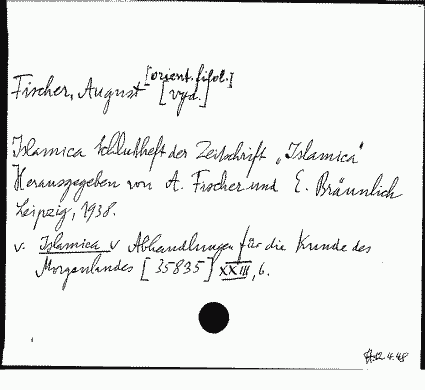 Fischer, August [orient. filol.]
[vyd.]
Islamica Schlußheft der Zeitschrift „Islamica"
Herausgegeben von A. Fischer und E. Bräunlich
Leipzig, 1938.
v. Islamica v Abhandlungen für die Kunde des
Morgenlandes [35835] XXIII, 6.
12.4.48